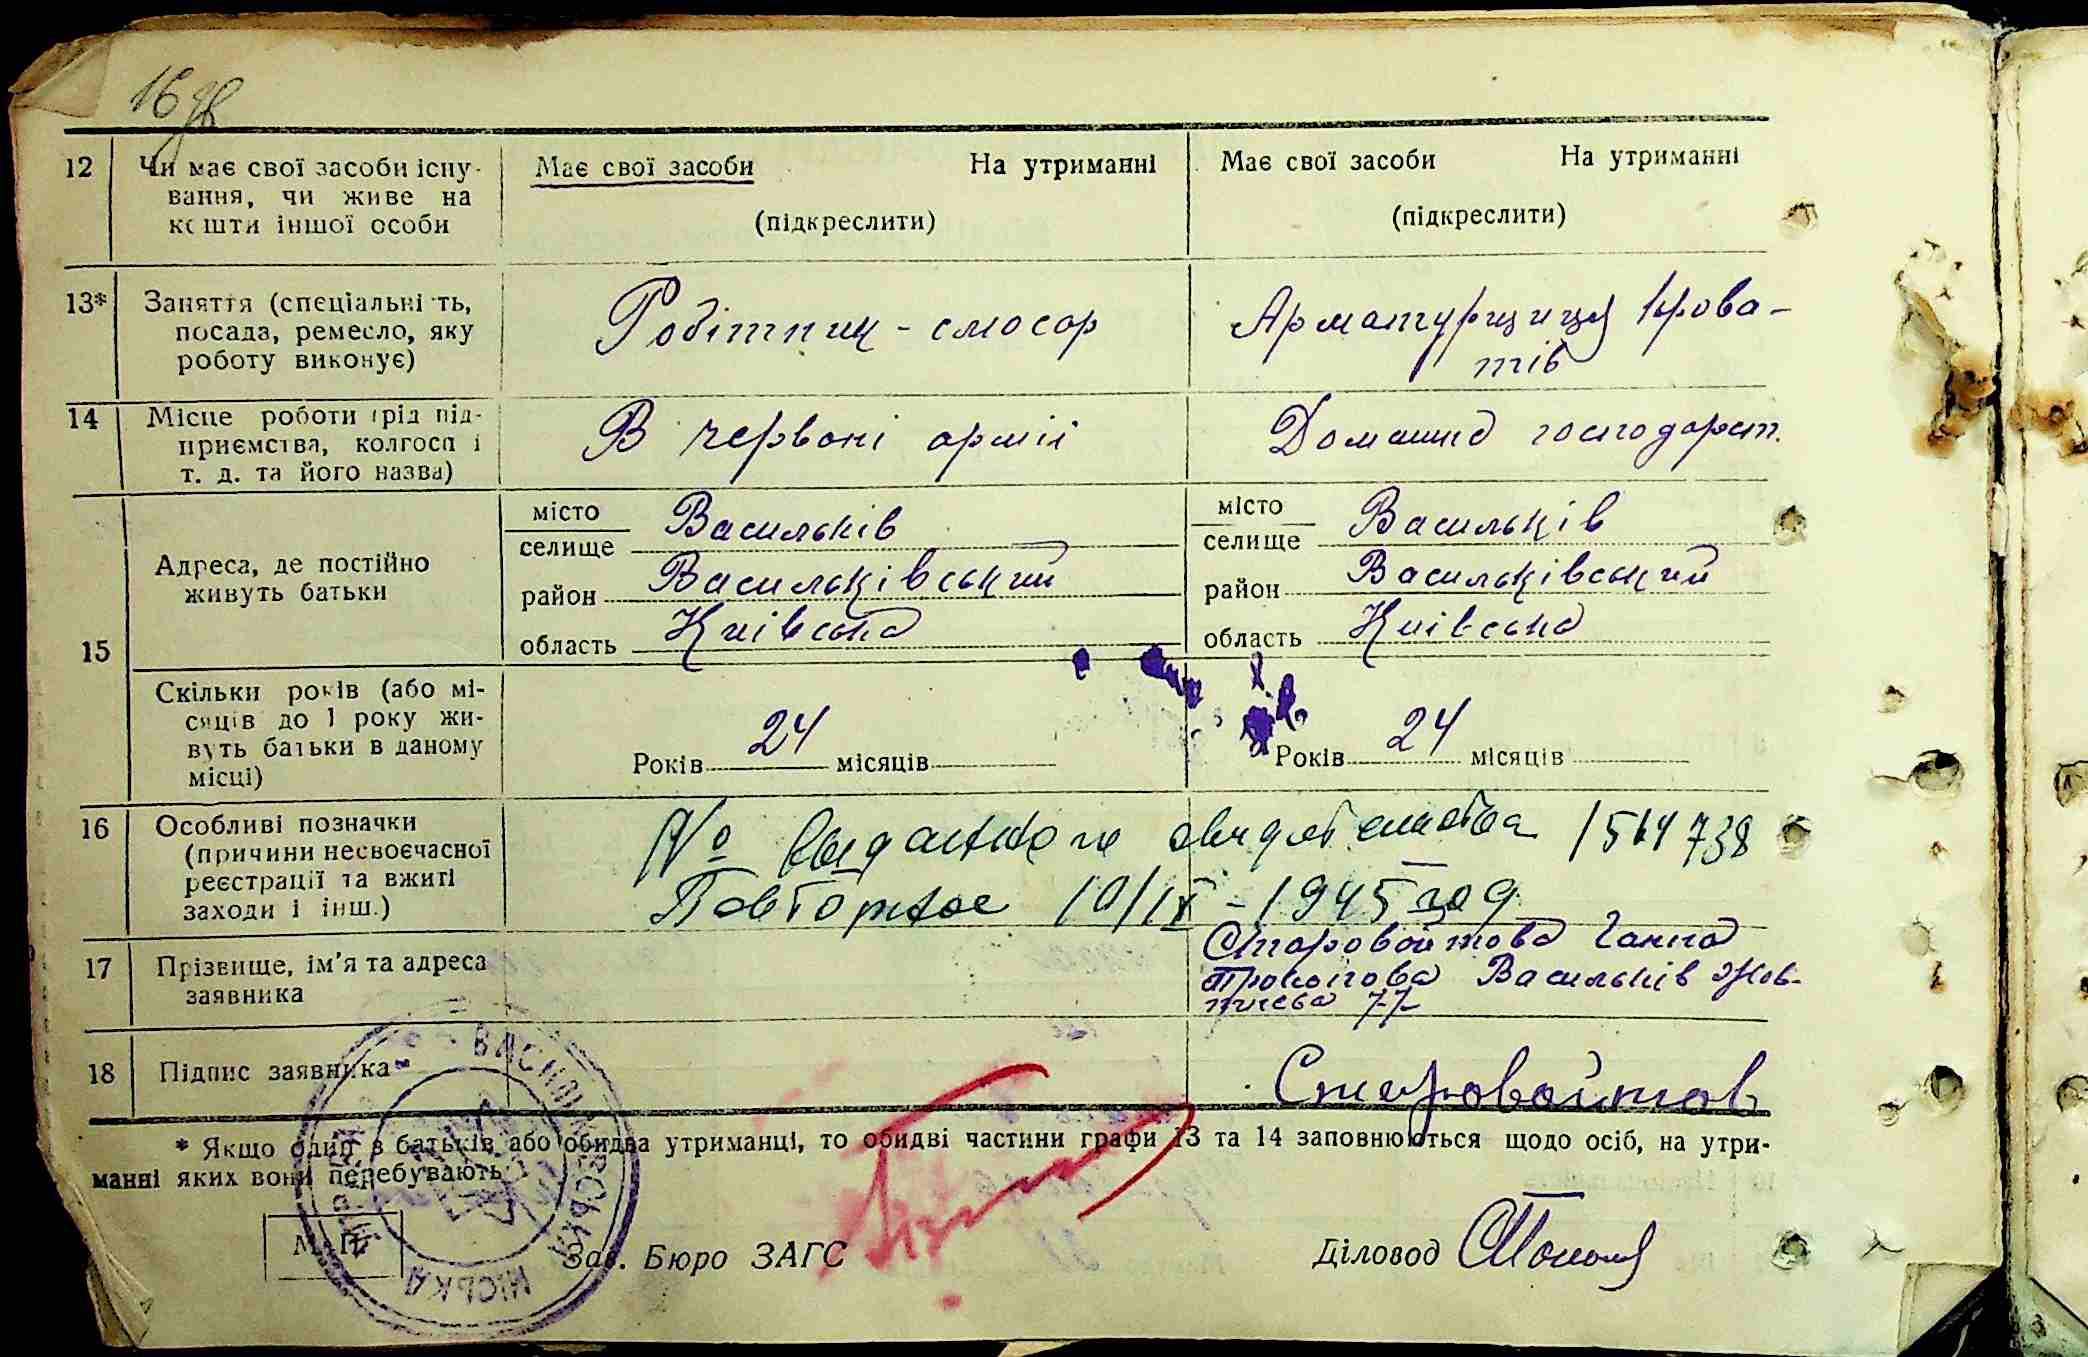 16
12 Чи має свої засоби існу-
вання, чи живе на
кошти іншої особи
Має свої засоби На утриманні
(підкреслити)
Має свої засоби На утриманні
(підкреслити)
13* Заняття (спеціальність,
посада, ремесло, яку
роботу виконує)
Робітник - слюсар
Арматурщиця крова-
тів
14 Місце роботи (рід під-
приємства, колгосп і
т. д. та його назва)
В червоні армії
Домашнє господарст.
15
Адреса, де постійно
живуть батьки
місто
селище Васильків
район Васильківський
область Київська
місто
селище Васильків
район Васильківський
область Київська
Скільки років (або мі-
сяців до 1 року жи-
вуть батьки в даному
місці)
Років 24 місяців
Років 24 місяців
16 Особливі позначки
(причини несвоєчасної
реєстрації та вжиті
заходи і інш.)
№ выданного свидетельства
Повторное 10/IX - 1945 год
17 Прізвище, ім'я та адреса
заявника
Старовойтова Ганна
Васильків Жов-
тнева 77
18 Підпис заявника
Старовойтов
* Якщо один з батьків або обидва утриманці, то обидві частини графи 13 та 14 заповнюються щодо осіб, на утри-
манні яких вони перебувають.
М. П.
Зав. Бюро ЗАГС
Діловод
ВАСИЛЬКІВСЬКА МІСЬКА